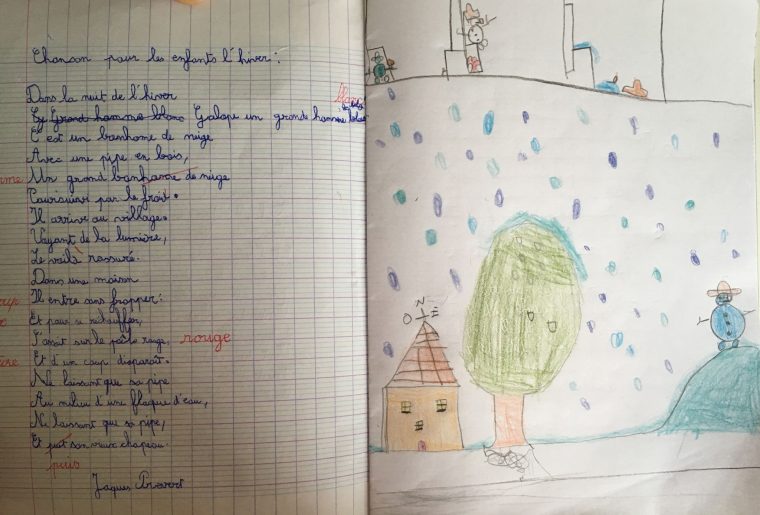 Chanson pour les enfants l'hiver:
Dans la nuit de l'hiver
Grand homme blanc Galope un grand homme blanc
C'est un banhome de neige
Avec une pipe en bois,
Un grand banhome de neige
Poursuivi par le froid.
Il arrive au village.
Voyant de la lumière,
Le voilà rassuré.
Dans une maison
Il entre sans frapper:
Et pour se réchauffer,
S'assoit sur le poêle rouge, rouge
Et d'un coup disparaît.
Ne laissant que sa pipe
Au milieu d'une flaque d'eau,
Ne laissant que sa pipe,
Et puit son vieux chapeau.
puis
Jaques Prévert
N
O E